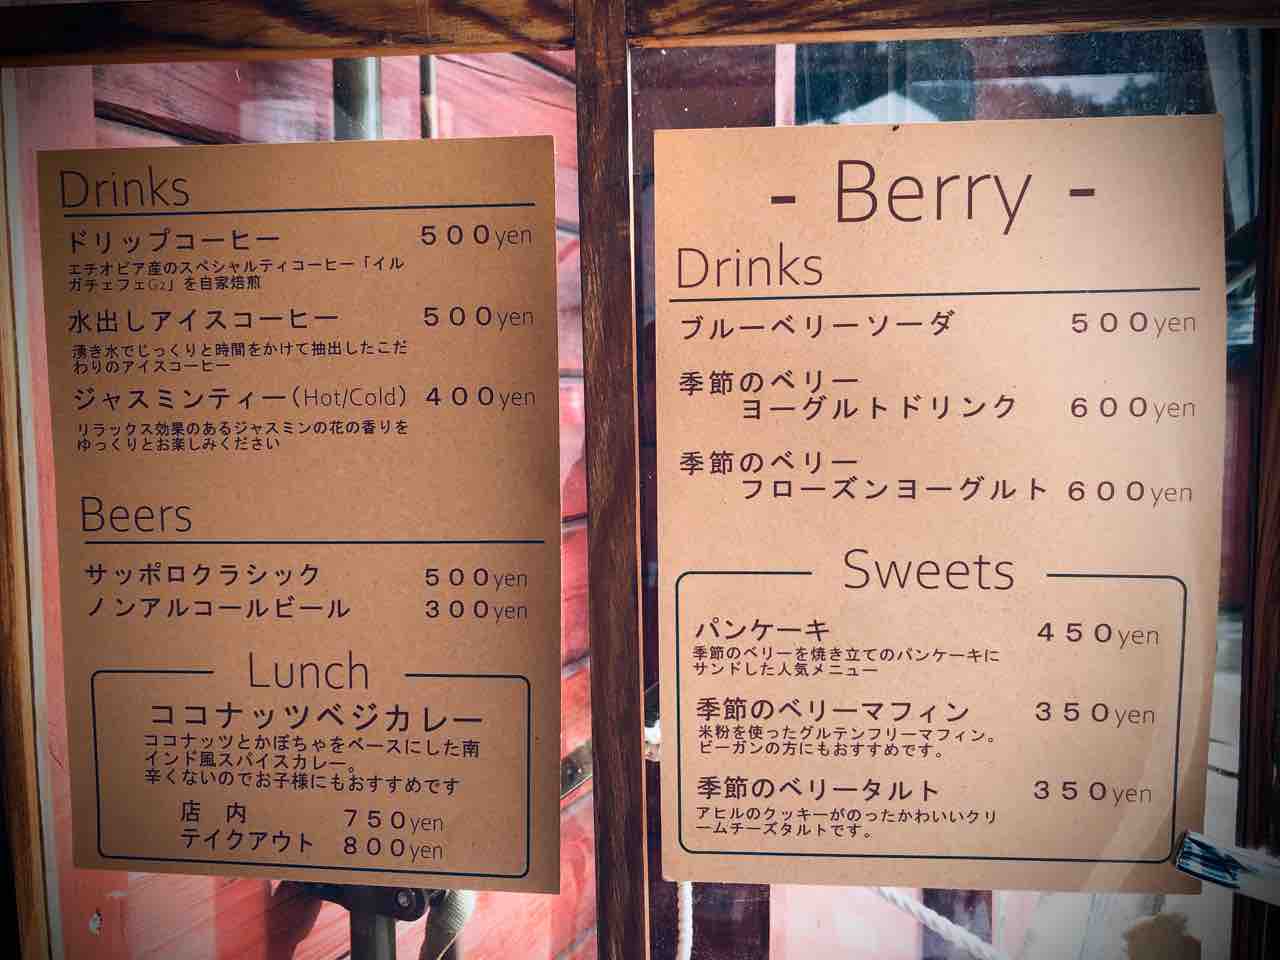 Drinks
ドリップコーヒー 500yen
エチオピア産のスペシャルティコーヒー「イル
ガチェフェG2」を自家焙煎
水出しアイスコーヒー 500yen
湧き水でじっくりと時間をかけて抽出したこだ
わりのアイスコーヒー
ジャスミンティー(Hot/Cold) 400yen
リラックス効果のあるジャスミンの花の香りを
ゆっくりとお楽しみください
Beers
サッポロクラシック 500yen
ノンアルコールビール 300yen
Lunch
ココナッツベジカレー
ココナッツとかぼちゃをベースにした南
インド風スパイスカレー。
辛くないのでお子様にもおすすめです
店内 750yen
テイクアウト 800yen
- Berry -
Drinks
ブルーベリーソーダ 500yen
季節のベリー
ヨーグルトドリンク 600yen
季節のベリー
フローズンヨーグルト 600yen
Sweets
パンケーキ 450yen
季節のベリーを焼き立てのパンケーキに
サンドした人気メニュー
季節のベリーマフィン 350yen
米粉を使ったグルテンフリーマフィン。
ビーガンの方にもおすすめです。
季節のベリータルト 350yen
アヒルのクッキーがのったかわいいクリ
ームチーズタルトです。